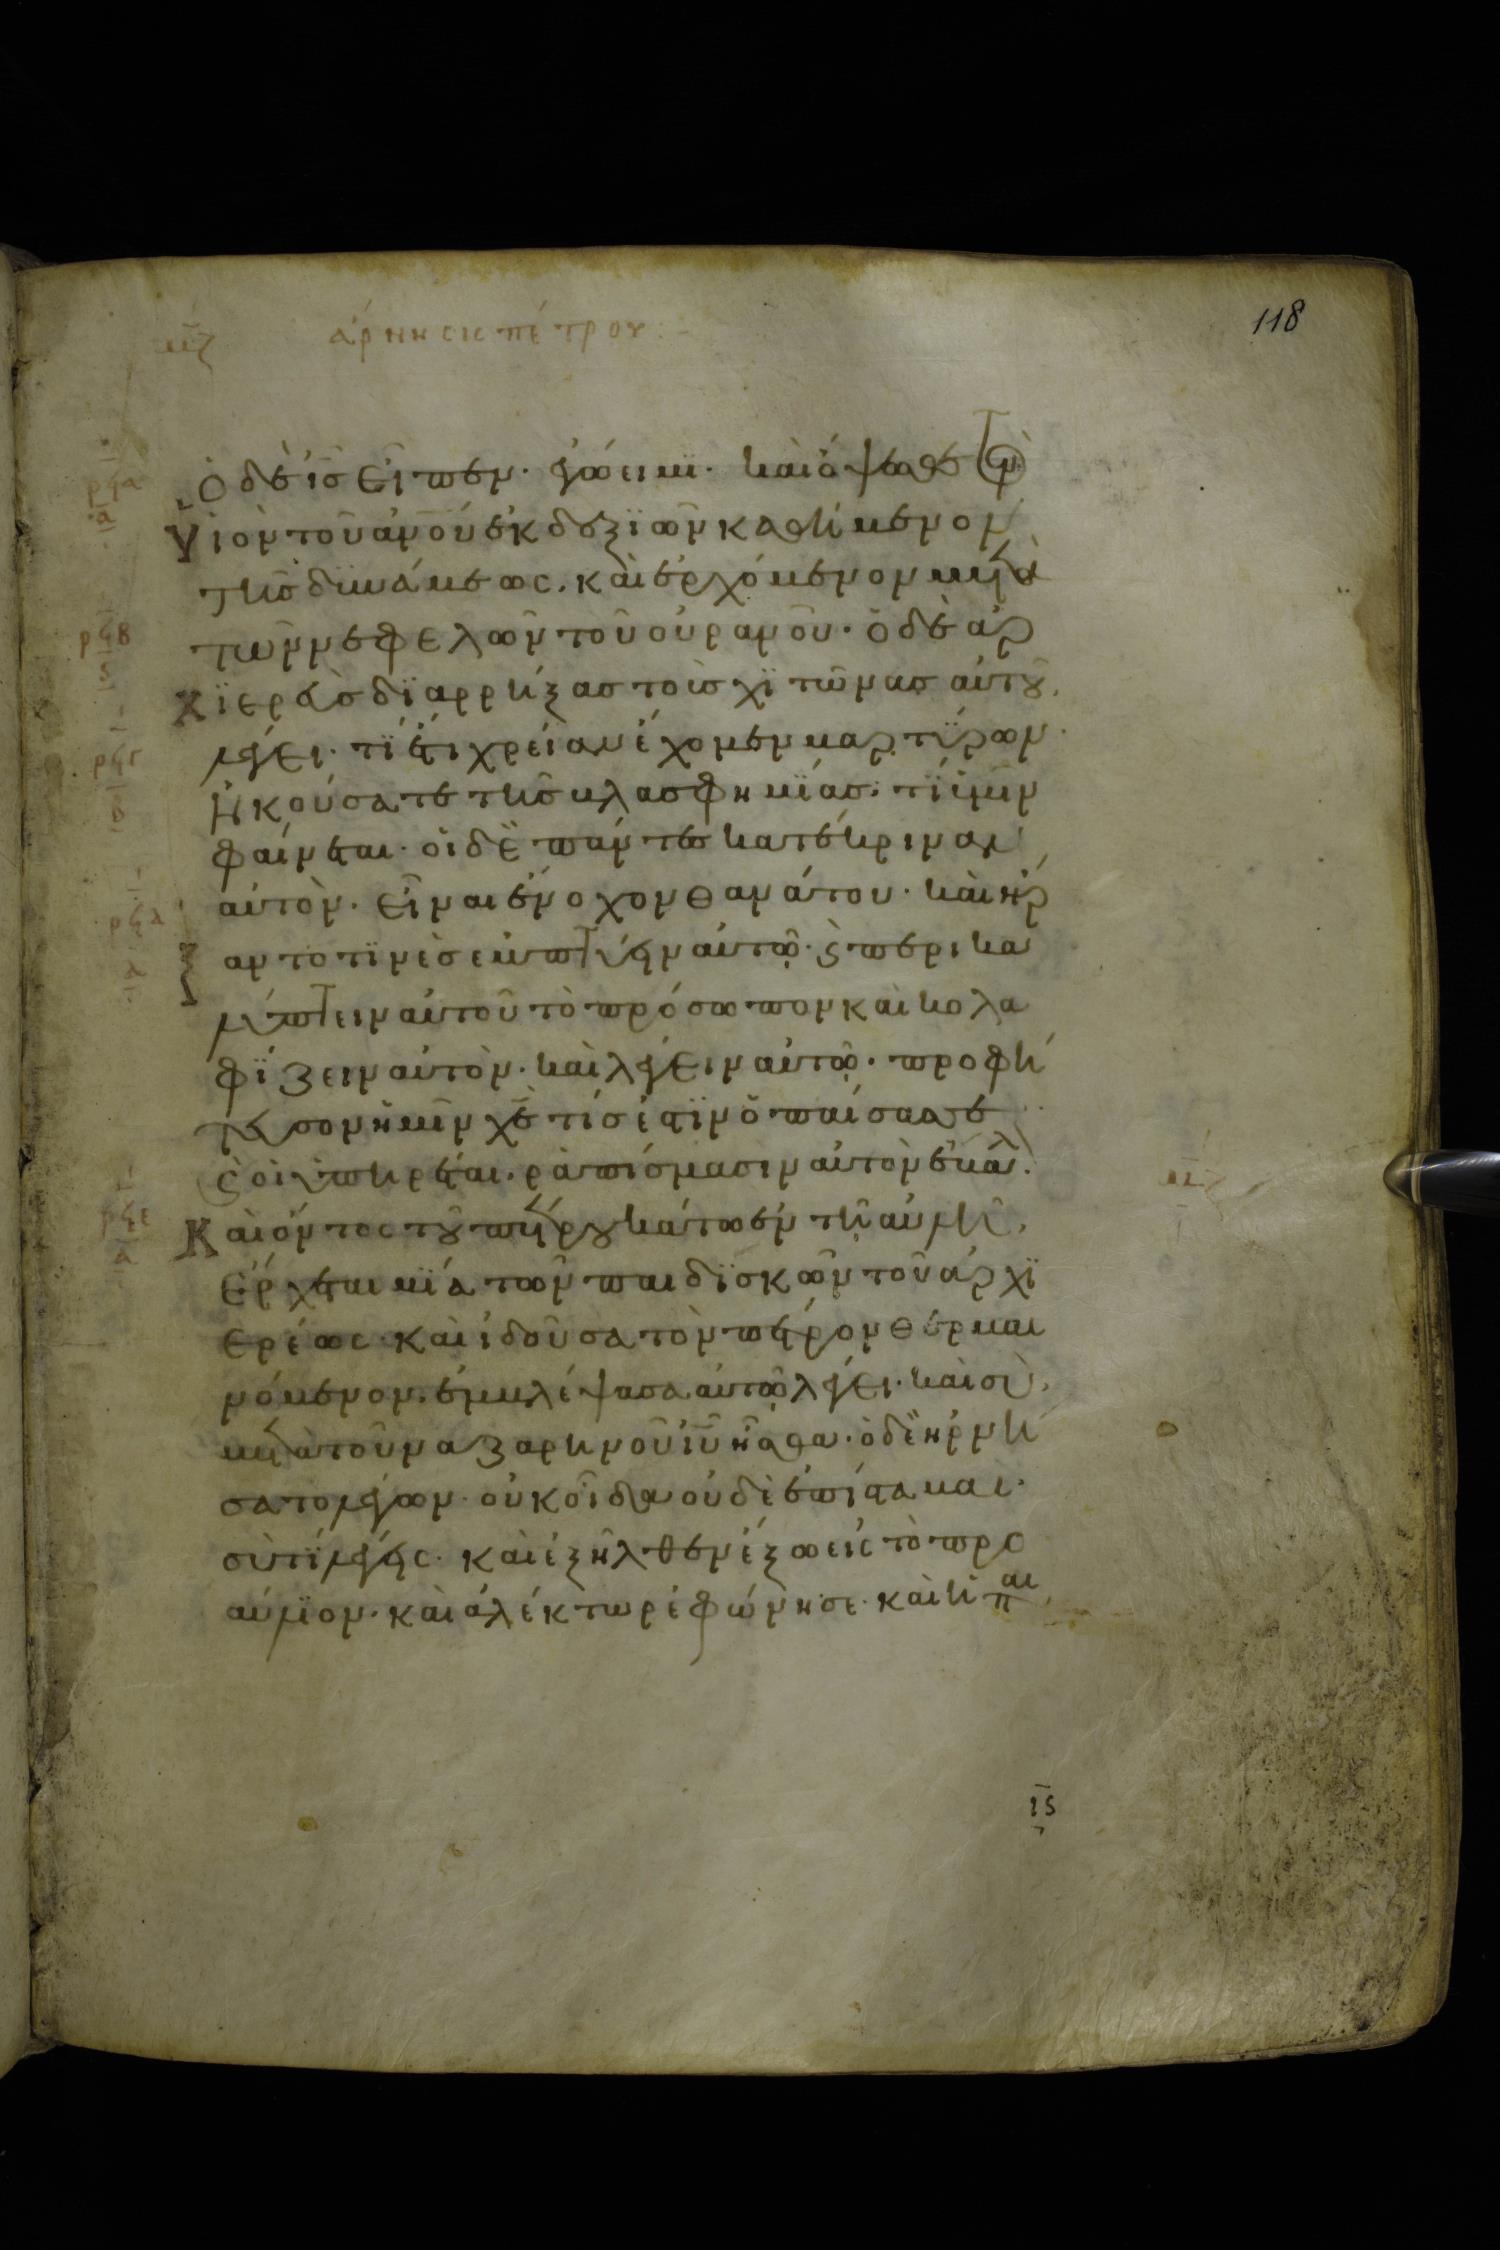 118
μζ ἄρνησις πέτρου:-
Ὁ δὲ ἰς εἶπεν· ἐγώ εἰμι· καὶ ὄψεσθε τὸν
υἱὸν τοῦ ἀνου ἐκ δεξϊῶν καθήμενον
τῆς δϋνάμεως, καὶ ἐρχόμενον μετὰ
τῶν νεφελῶν τοῦ οὐρανοῦ· ὁ δὲ ἀρ
χϊερεὺς δϊαρρήξας τοὺς χϊτῶνας αὐτοῦ,
λέγει· τί ἔτι χρείαν ἔχομεν μαρτύρων·
Ἠκούσατε τῆς βλασφημίας· τί ὑμῖν
φαίνεται· οἱ δὲ πάντες κατέκριναν
αὐτὸν· εἶναι ἔνοχον θανάτου· καὶ ἤρ
ξαντό τϊνὲς ἐμπτύειν αὐτῷ· ϗ περικα
λύπτειν αὐτοῦ τὸ πρόσωπον καὶ κολα
φίζειν αὐτὸν· καὶ λέγειν αὐτῷ· προφή
τευσον ἡμῖν χε τίς ἐστϊν ὁ παίσας σε
ϗ οἱ ὑπηρέται· ραπίσμασιν αὐτὸν ἔβαλ.
Καὶ ὄντος τοῦ πέτρου κάτω ἐν τῇ αὐλῇ,
ἔρχεται μία τῶν παιδϊσκῶν τοῦ ἀρχϊ
ερέως· καὶ ἰδοῦσα τὸν πέτρον θερμαι
νόμενον, ἐμβλέψασα αὐτῷ λέγει· καὶ σὺ,
μετὰ τοῦ ναζαρηνοῦ ιυ ἦσθα· ὁ δὲ ἠρνή
σατο λέγων· οὐκ οἶδα οὐδὲ ἐπίσταμαι·
σὺ τί λέγεις· καὶ ἐξῆλθεν ἔξω εἰς τὸ προ
αύλϊον· καὶ ἀλέκτωρ ἐφώνησε· καὶ ἡ παι
ρϟα
α
ρϟβ
ϛ
ρϟγ
β
ρϟδ
α
ρϟε
α
ιϛ